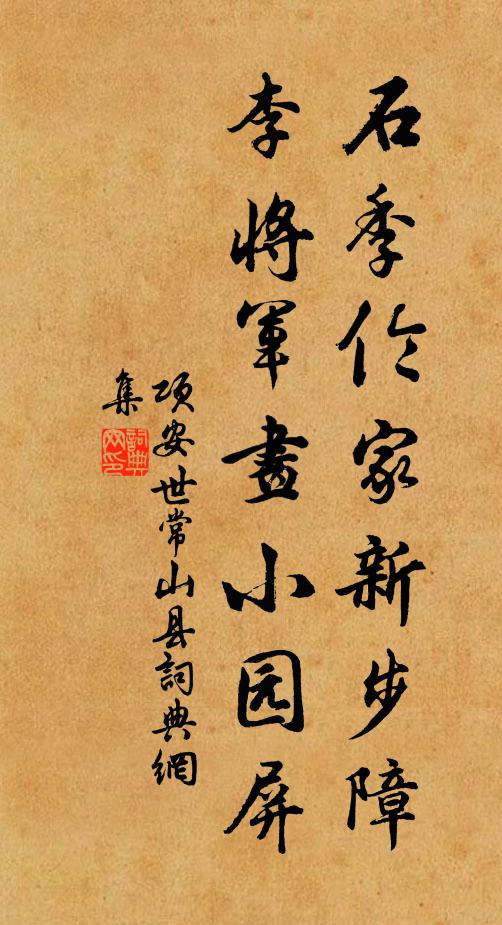 石季伦家新步障
李将军畫小园屏
项安世常山县詞典網
集
詞典
网印